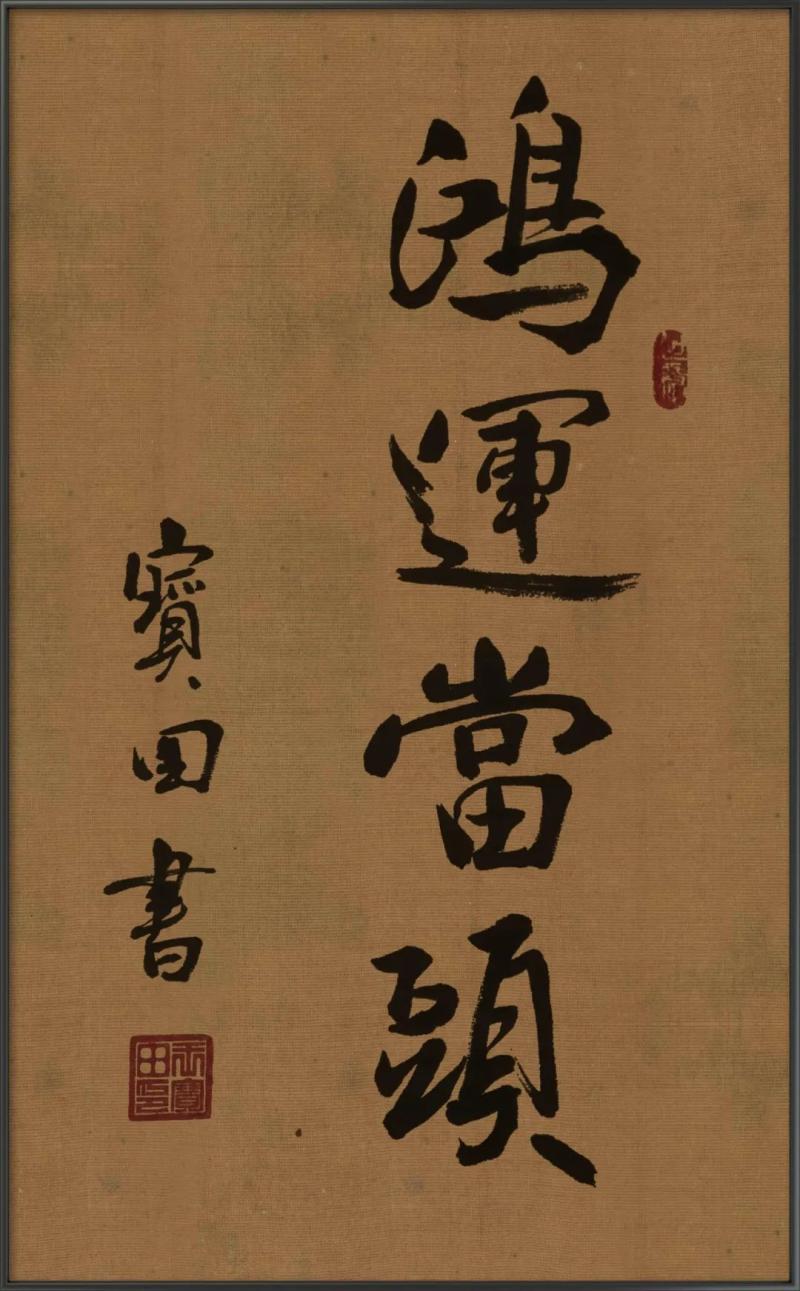 鴻運當頭
寶田書